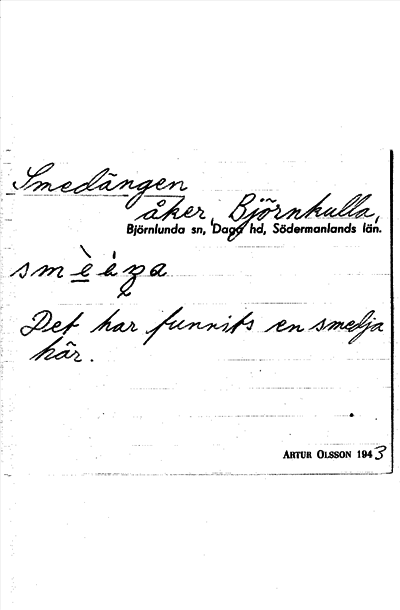 Smedängen
åker, Björnkulla,
Björnlunda sn, Daga hd, Södermanlands län.
Det har funnits en smedja
här.
ARTUR OLSSON 1943